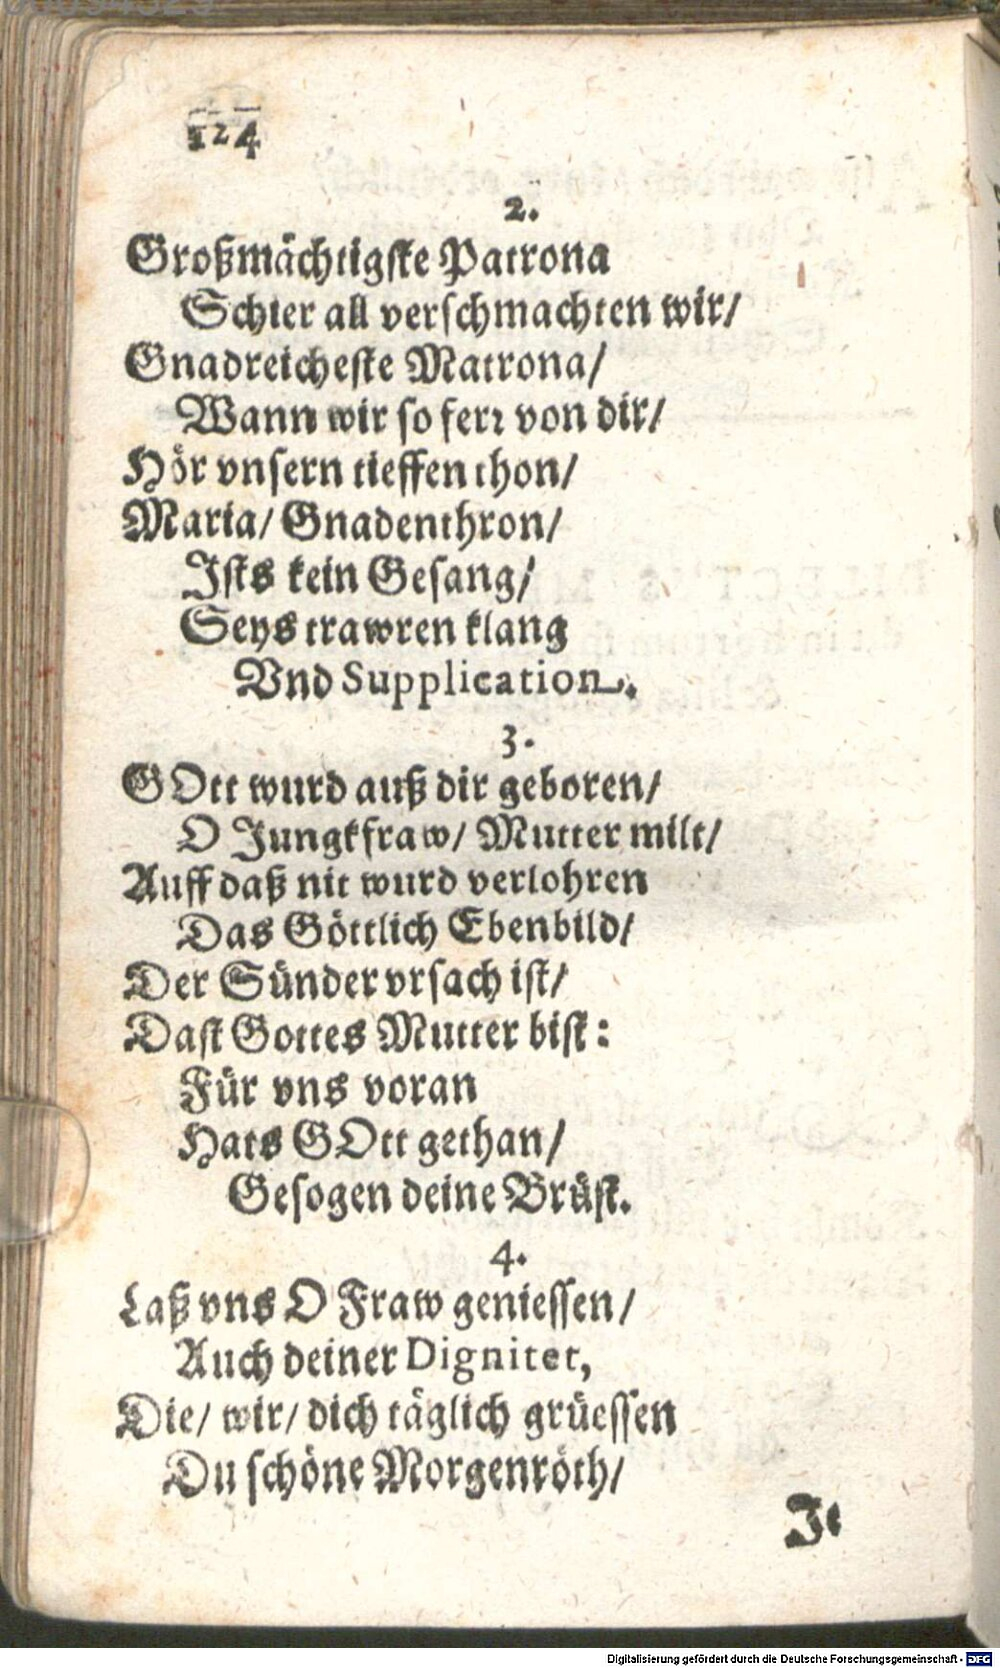 124
2.
Großmächtigste Patrona
Schier all verschmachten wir/
Gnadreicheste Matrona/
Wann wir so ferr von dir/
Hör vnsern tieffen thon/
Maria/ Gnadenthron/
Ists kein Gesang/
Seys trawren klang
Vnd Supplication.
3.
GOtt wurd auß dir geboren/
O Jungkfraw/ Mutter milt/
Auff daß nit wurd verlohren
Das Göttlich Ebenbild/
Der Sünder vrsach ist/
Dast Gottes Mutter bist:
Für vns voran
Hats GOtt gethan/
Gesogen deine Brüst.
4.
Laß vns O Fraw geniessen/
Auch deiner Dignitet,
Die/ wir/ dich täglich grüessen
Du schöne Morgenröth/
Je
Digitalisierung gefördert durch die Deutsche Forschungsgemeinschaft - DFG